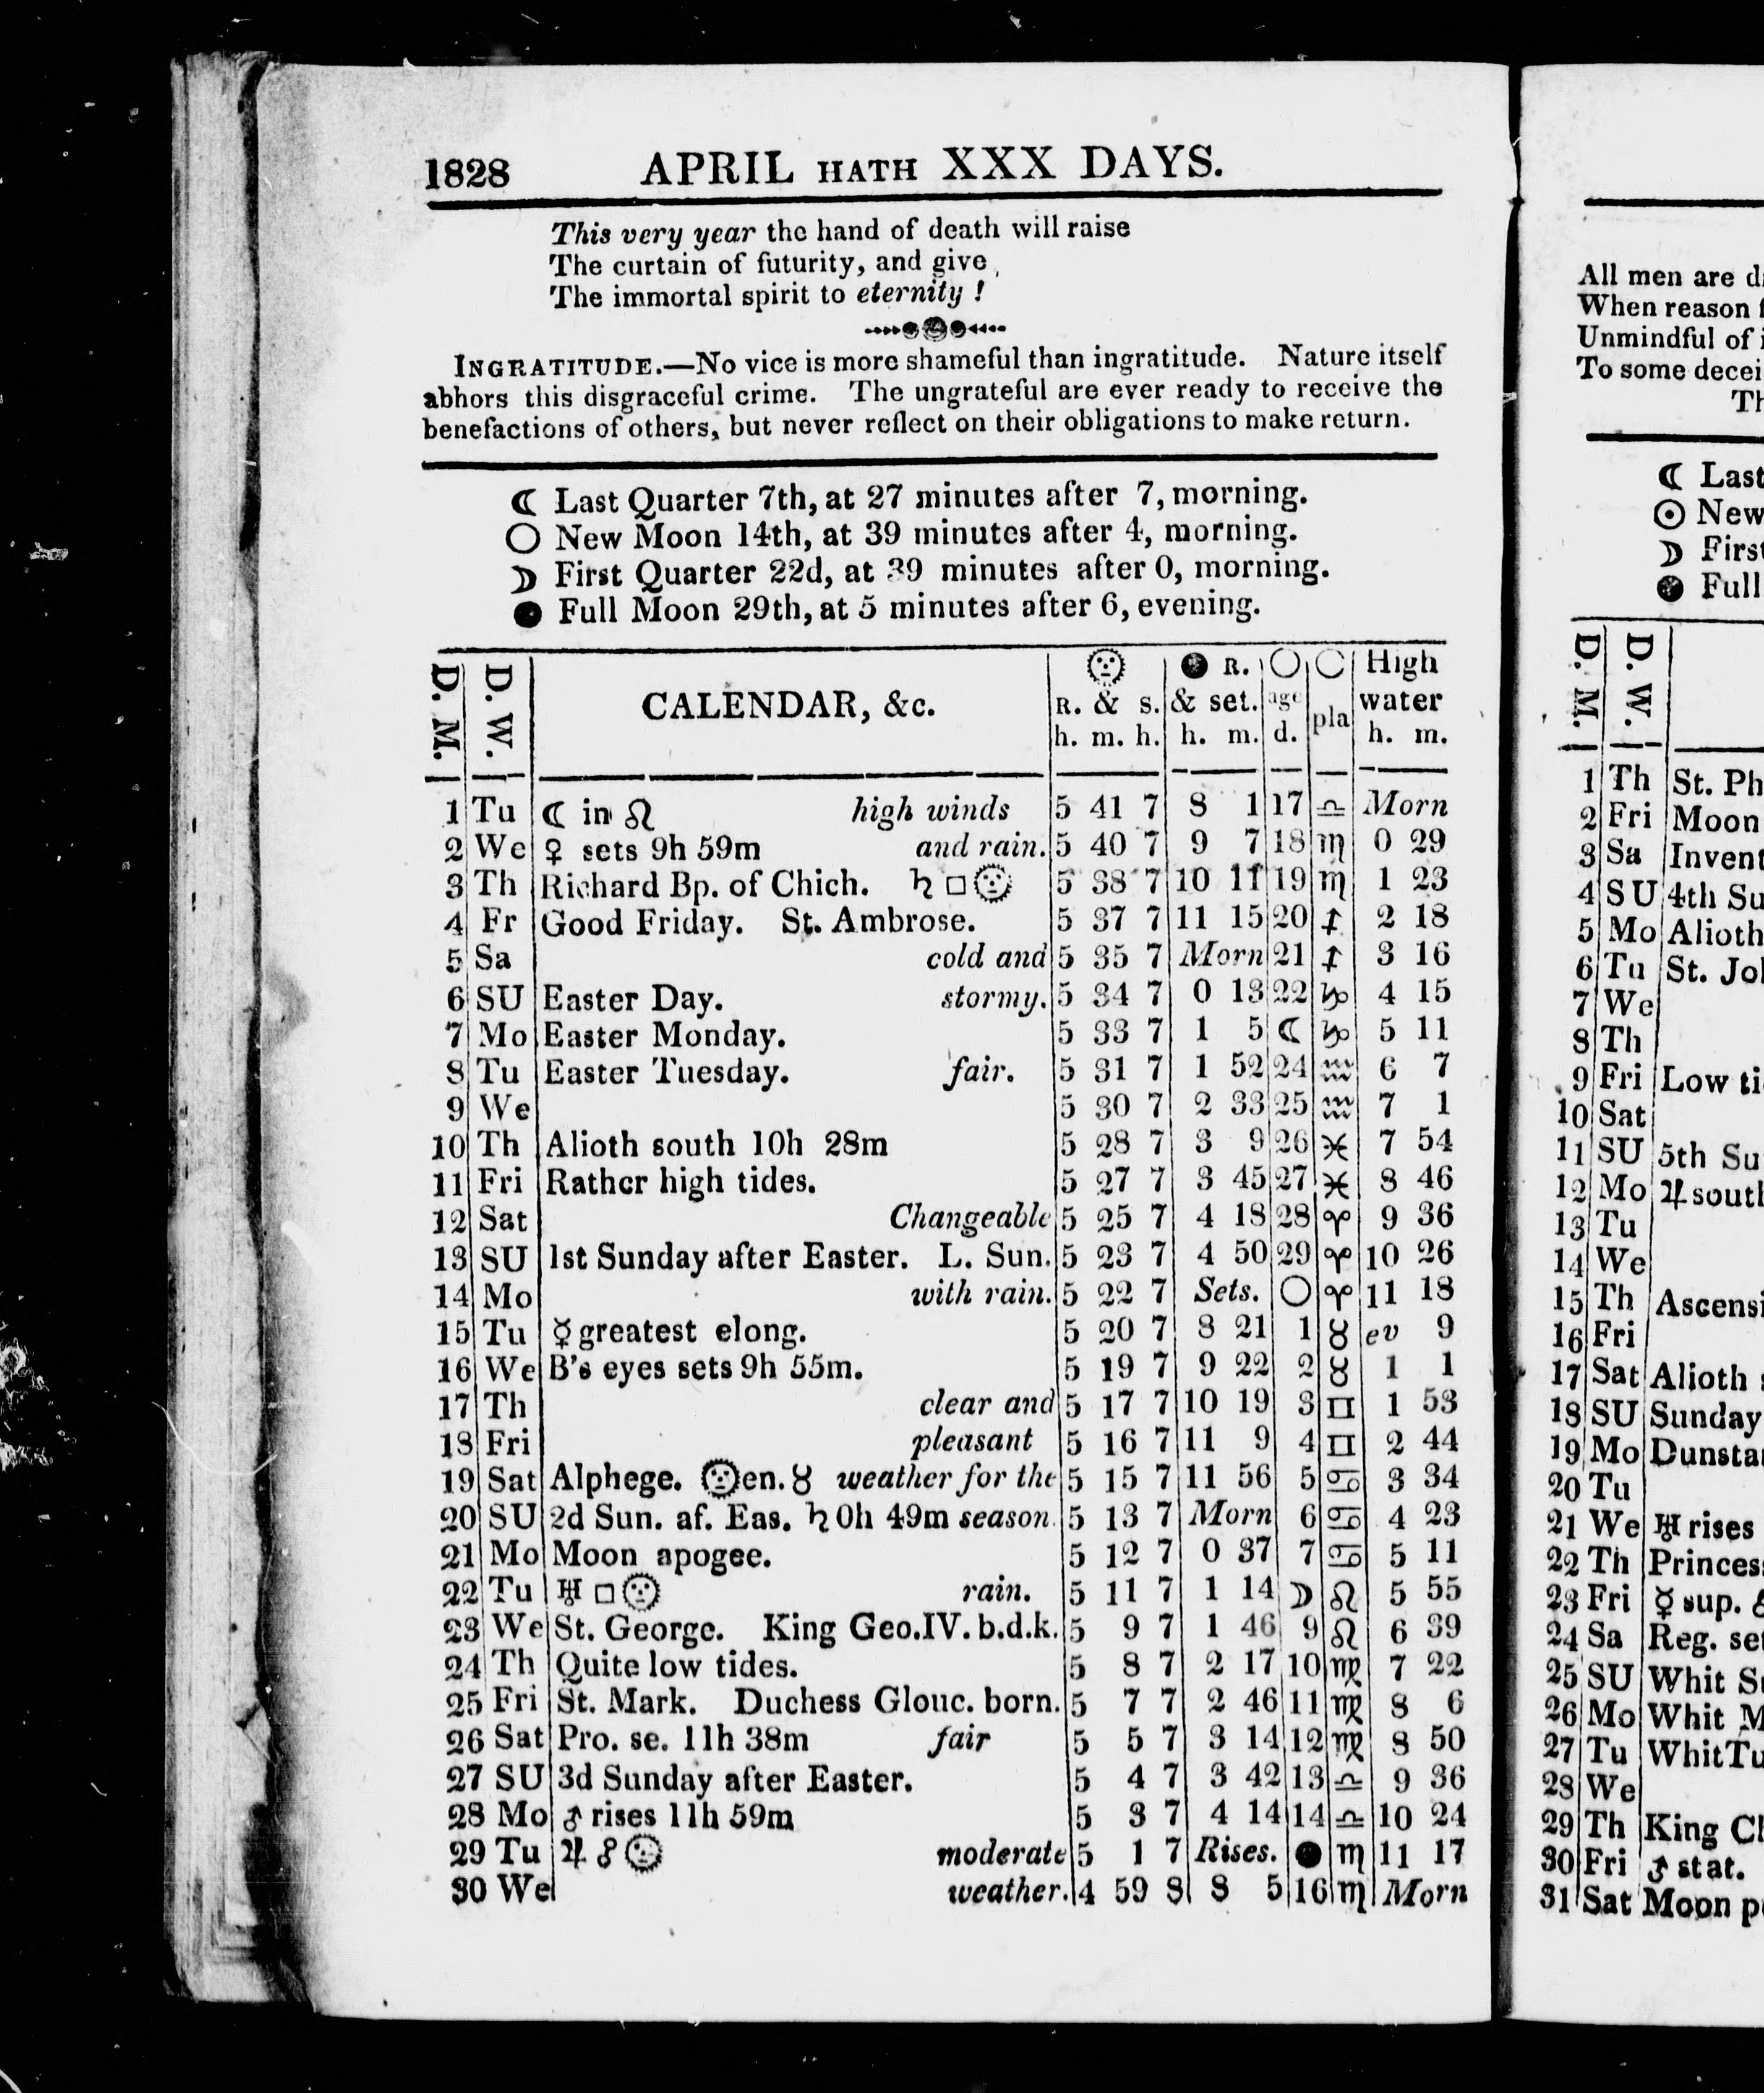 1828 APRIL HATH XXX DAYS.
This very year the hand of death will raise
The curtain of futurity, and give
The immortal spirit to eternity !
INGRATITUDE.—No vice is more shameful than ingratitude. Nature itself
abhors this disgraceful crime. The ungrateful are ever ready to receive the
benefactions of others, but never reflect on their obligations to make return.
☾ Last Quarter 7th, at 27 minutes after 7, morning.
○ New Moon 14th, at 39 minutes after 4, morning.
☽ First Quarter 22d, at 39 minutes after 0, morning.
● Full Moon 29th, at 5 minutes after 6, evening.
D. M. D. W. CALENDAR, &c. ☉ R. & s. h. m. h. ● R. & set. h. m. ○ age d. ○ pla High water h. m.
1 Tu ☾ in ♌ high winds 5 41 7 8 1 17 ♎ Morn
2 We ♀ sets 9h 59m and rain. 5 40 7 9 7 18 ♏ 0 29
3 Th Richard Bp. of Chich. ♄ □ ☉ 5 38 7 10 11 19 ♏ 1 23
4 Fr Good Friday. St. Ambrose. 5 37 7 11 15 20 ♐ 2 18
5 Sa cold and 5 35 7 Morn 21 ♐ 3 16
6 SU Easter Day. stormy. 5 34 7 0 13 22 ♑ 4 15
7 Mo Easter Monday. 5 33 7 1 5 ☾ ♑ 5 11
8 Tu Easter Tuesday. fair. 5 31 7 1 52 24 ♒ 6 7
9 We 5 30 7 2 33 25 ♒ 7 1
10 Th Alioth south 10h 28m 5 28 7 3 9 26 ♓ 7 54
11 Fri Rather high tides. 5 27 7 3 45 27 ♓ 8 46
12 Sat Changeable 5 25 7 4 18 28 ♈ 9 36
13 SU 1st Sunday after Easter. L. Sun. 5 23 7 4 50 29 ♈ 10 26
14 Mo with rain. 5 22 7 Sets. ○ ♈ 11 18
15 Tu ☿ greatest elong. 5 20 7 8 21 1 ♉ ev 9
16 We B's eyes sets 9h 55m. 5 19 7 9 22 2 ♉ 1 1
17 Th clear and 5 17 7 10 19 3 ♊ 1 53
18 Fri pleasant 5 16 7 11 9 4 ♊ 2 44
19 Sat Alphege. ☉ en. ♉ weather for the 5 15 7 11 56 5 ♋ 3 34
20 SU 2d Sun. af. Eas. ♄ 0h 49m season. 5 13 7 Morn 6 ♋ 4 23
21 Mo Moon apogee. 5 12 7 0 37 7 ♋ 5 11
22 Tu ♅ □ ☉ rain. 5 11 7 1 14 ☽ ♌ 5 55
23 We St. George. King Geo.IV. b.d.k. 5 9 7 1 46 9 ♌ 6 39
24 Th Quite low tides. 5 8 7 2 17 10 ♍ 7 22
25 Fri St. Mark. Duchess Glouc. born. 5 7 7 2 46 11 ♍ 8 6
26 Sat Pro. se. 11h 38m fair 5 5 7 3 14 12 ♍ 8 50
27 SU 3d Sunday after Easter. 5 4 7 3 42 13 ♎ 9 36
28 Mo ♂ rises 11h 59m 5 3 7 4 14 14 ♎ 10 24
29 Tu ♃ ☍ ☉ moderate 5 1 7 Rises. ● ♏ 11 17
30 We weather. 4 59 8 8 5 16 ♏ Morn
All men are
When reason
Unmindful of
To some
☾ Last
☉ New
☽ First
● Full
D. M. D. W.
1 Th St. Ph
2 Fri Moon
3 Sa Invent
4 SU 4th Su
5 Mo Alioth
6 Tu St. Jo
7 We
8 Th
9 Fri Low ti
10 Sat
11 SU 5th Su
12 Mo ♃ south
13 Tu
14 We
15 Th Ascensi
16 Fri
17 Sat Alioth
18 SU Sunday
19 Mo Dunsta
20 Tu
21 We ♅ rises
22 Th Princes
23 Fri ☿ sup.
24 Sa Reg. se
25 SU Whit S
26 Mo Whit M
27 Tu WhitTu
28 We
29 Th King C
30 Fri ♂ stat.
31 Sat Moon p